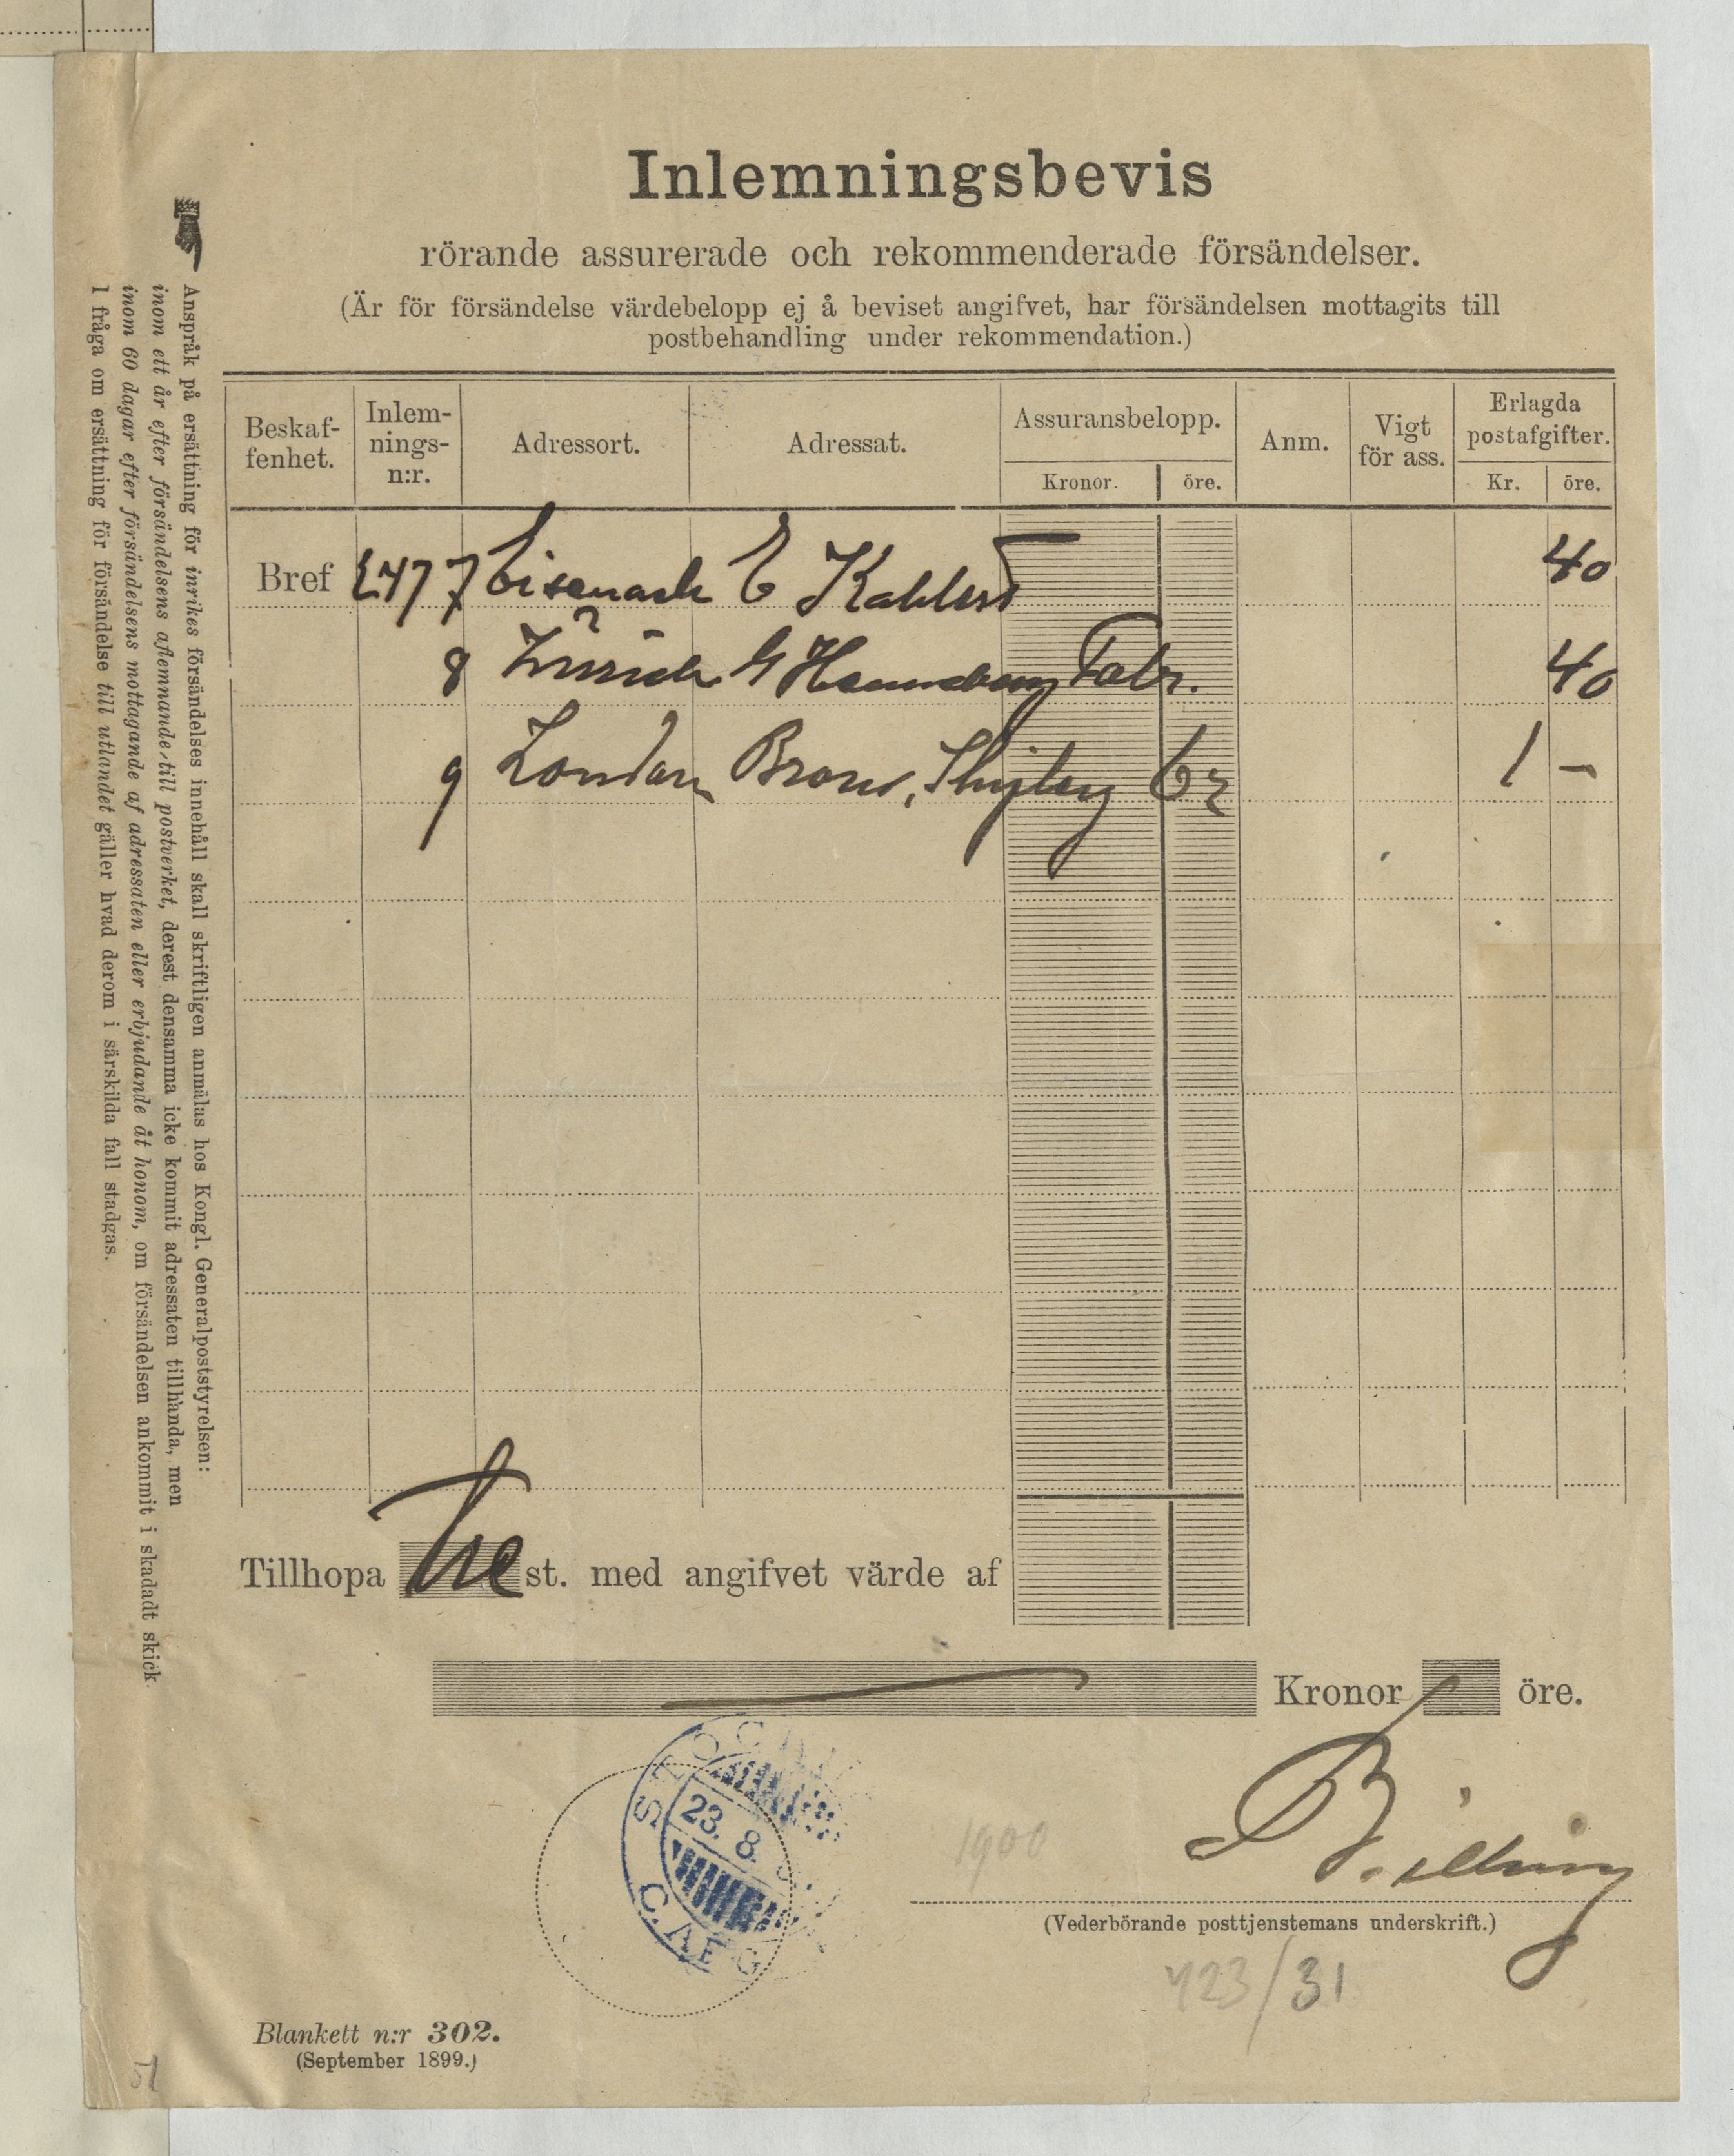 Inlemningsbevis
rörande assurerade och rekommenderade försändelser.
(Är för försändelse värdebelopp ej å beviset angifvet, har försändelsen mottagits till
postbehandling under rekommendation.)
Beskaf-fenhet. Inlem-nings-n:r. Adressort. Adressat. Assuransbelopp. Kronor. öre. Anm. Vigt för ass. Erlagda postafgifter. Kr. öre.
Bref 2477 Eisenach E Kahlert 40
8 Zürich G Henneberg Fabr. 40
9 London Brown, Shipley Co 1 –
Tillhopa tre st. med angifvet värde af
Kronor öre.
STOCKH
23. 8.
C. AFG
1900
Billing
(Vederbörande posttjenstemans underskrift.)
423/31
Blankett n:r 302.
(September 1899.)
Anspråk på ersättning för inrikes försändelses innehåll skall skriftligen anmälas hos Kongl. Generalpoststyrelsen:
inom ett år efter försändelsens aflemnande till postverket, derest densamma icke kommit adressaten tillhanda, men
inom 60 dagar efter försändelsens mottagande af adressaten eller erbjudande åt honom, om försändelsen ankommit i skadadt skick.
I fråga om ersättning för försändelse till utlandet gäller hvad derom i särskilda fall stadgas.